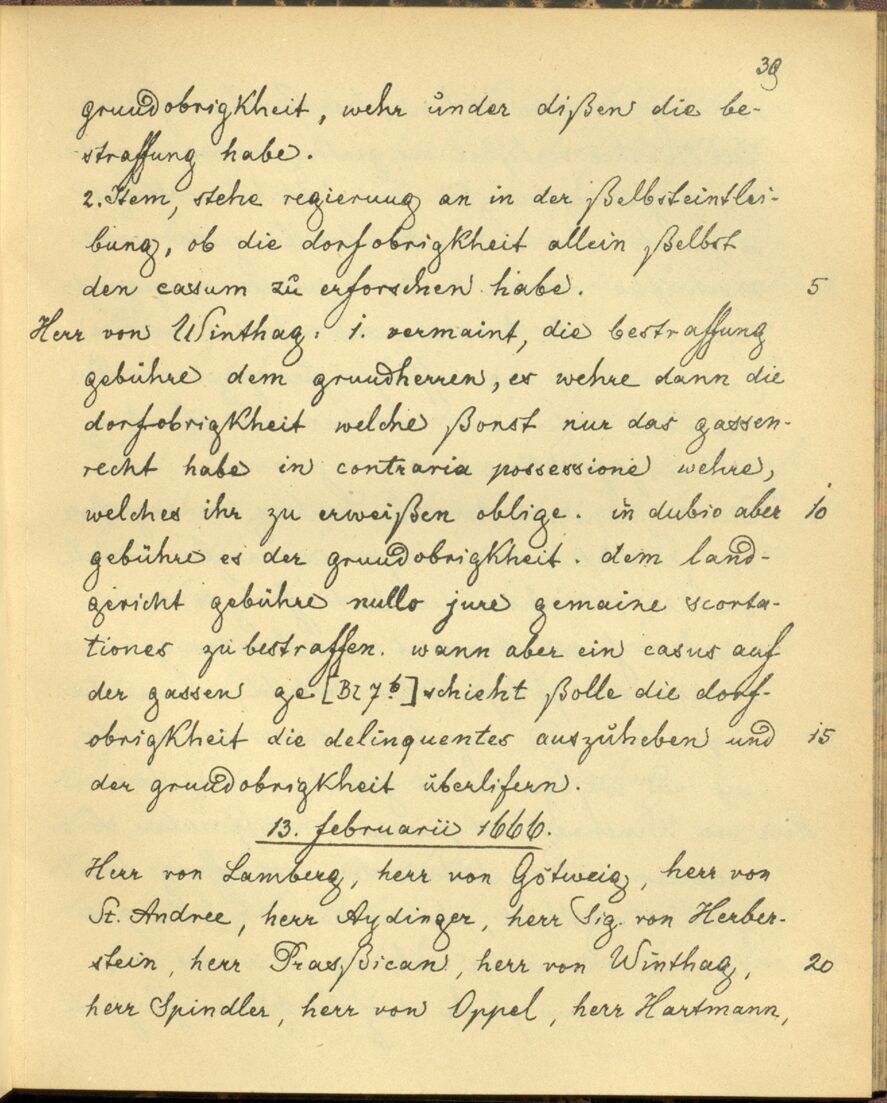 39
grundobrigkheit, wehr under dißen die be-
straffung habe.
2. Item, stehe regierung an in der ßelbsteintlei-
bung, ob die dorfobrigkheit allein ßelbst
den casum zu erforschen habe. 5
Herr von Winthag: 1. vermaint, die bestraffung
gebühre dem grundherren, es wehre dann die
dorfobrigkheit welche ßonst nur das gassen-
recht habe in contraria possessione wehre,
welches ihr zu erweißen oblige. in dubio aber 10
gebühre es der grundobrigkheit. dem land-
gericht gebühre nullo jure gemaine scorta-
tiones zu bestraffen. wann aber ein casus auf
der gassen ge[Bl 7b]schieht ßolle die dorf-
obrigkheit die delinquentes auszuheben und 15
der grundobrigkheit überlifern.
13. februarii 1666.
Herr von Lamberg, herr von Götweig, herr von
St. Andree, herr Aydinger, herr Sig. von Herber-
stein, herr Prasßican, herr von Winthag, 20
herr Spindler, herr von Oppel, herr Hartmann,